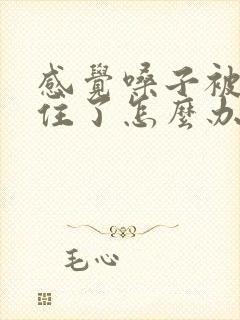 感覺嗓子被
住了怎麼办
毛心